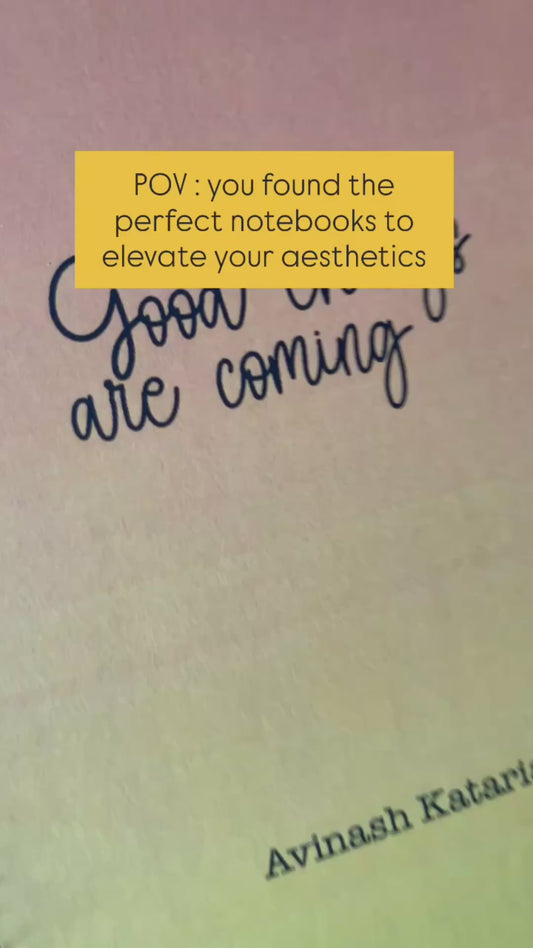 POV : you found the
perfect notebooks to
elevate your aesthetics
Good
are coming
Avinash